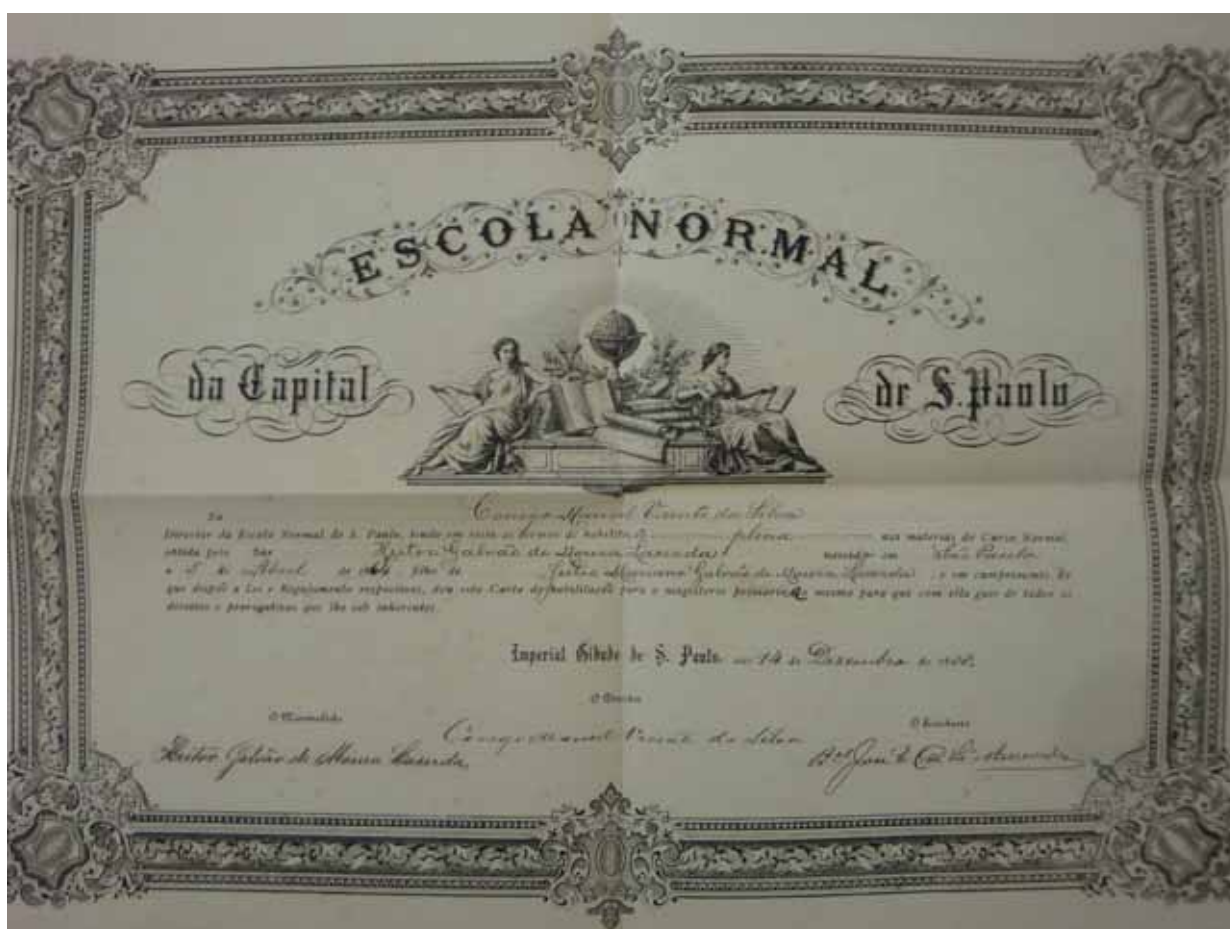 ESCOLA NORMAL
da Capital
de S. Paulo
Eu Conego Manuel Vicente da Silva
Director da Escola Normal de S. Paulo, tendo em vista os termos de plena nas materias do Curso Normal
obtida pelo Snr Heitor Galvão de Moura Lacerda nascido em São Paulo
a de Abril de filho de Galvão de Moura Lacerda, e em cumprimento do
que dispõe a Lei e Regulamento respectivos, deu esta Carta de habilitação para o magisterio mesmo para que com ella gose de todos os
direitos e prerogativas que lhe são inherentes.
Imperial Cidade de S. Paulo em 14 de Dezembro de
O Director
O Normalista
O Secretario
Conego Manuel Vicente da Silva
Heitor Galvão de Moura Lacerda
Bel José